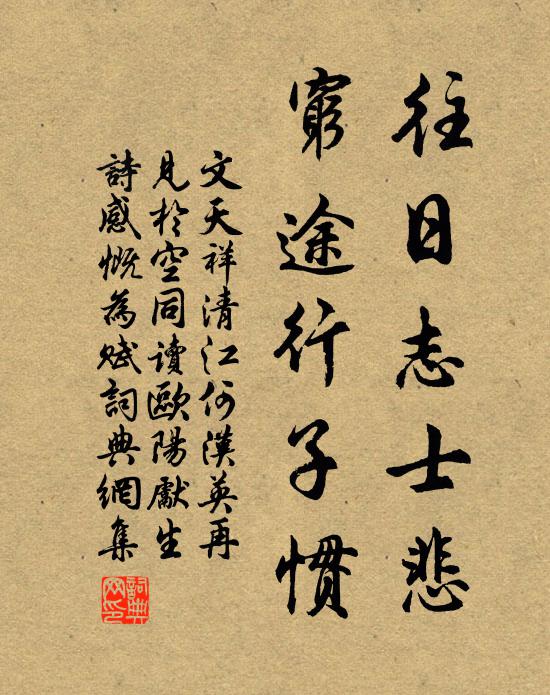 往日志士悲
窮途行子慣
文天祥清江何漢英再
見於空同讀歐陽獻生
詩感慨為賦詞典網集
詞典網印